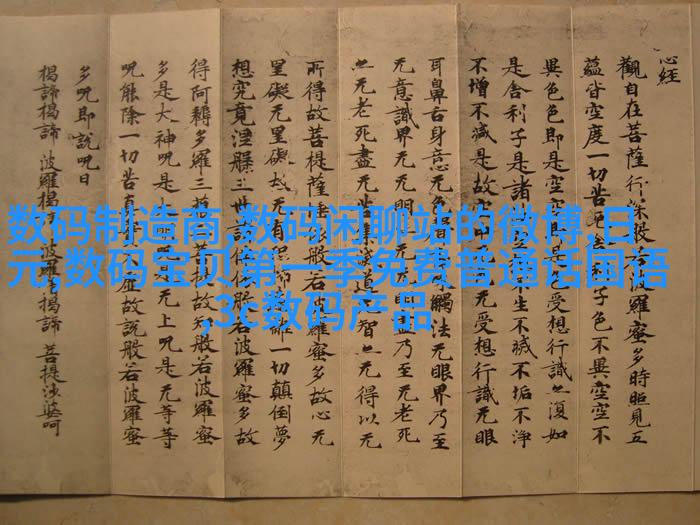 心经
觀自在菩薩行深般若波羅蜜多時照見五
蘊皆空度一切苦厄舍利子色不異空空不
異色色即是空空即是色受想行識亦復如
是舍利子是諸法空相不生不滅不垢不淨
不增不減是故空中无受想行識无眼
耳鼻舌身意无色觸法无眼界乃至
无意識界无无明盡乃至无老死
亦无老死盡无苦集滅道无智亦无得以无
所得故菩提薩埵般若波羅蜜多故心无
罣礙无罣礙故无有一切顛倒夢
想究竟涅槃三世諸佛依般若波羅蜜多故
得阿耨多羅三菩提故知般若波羅蜜
多是大神呪是无上呪是无等等
呪能除一切苦真虛故說般若波羅蜜
多呪即說呪曰
揭諦揭諦 波羅揭諦 波羅揭諦 菩提薩婆呵
数码制造商,数码闲聊站的微博,日
元,数码宝贝第一季免费普通话国语
,3c数码产品